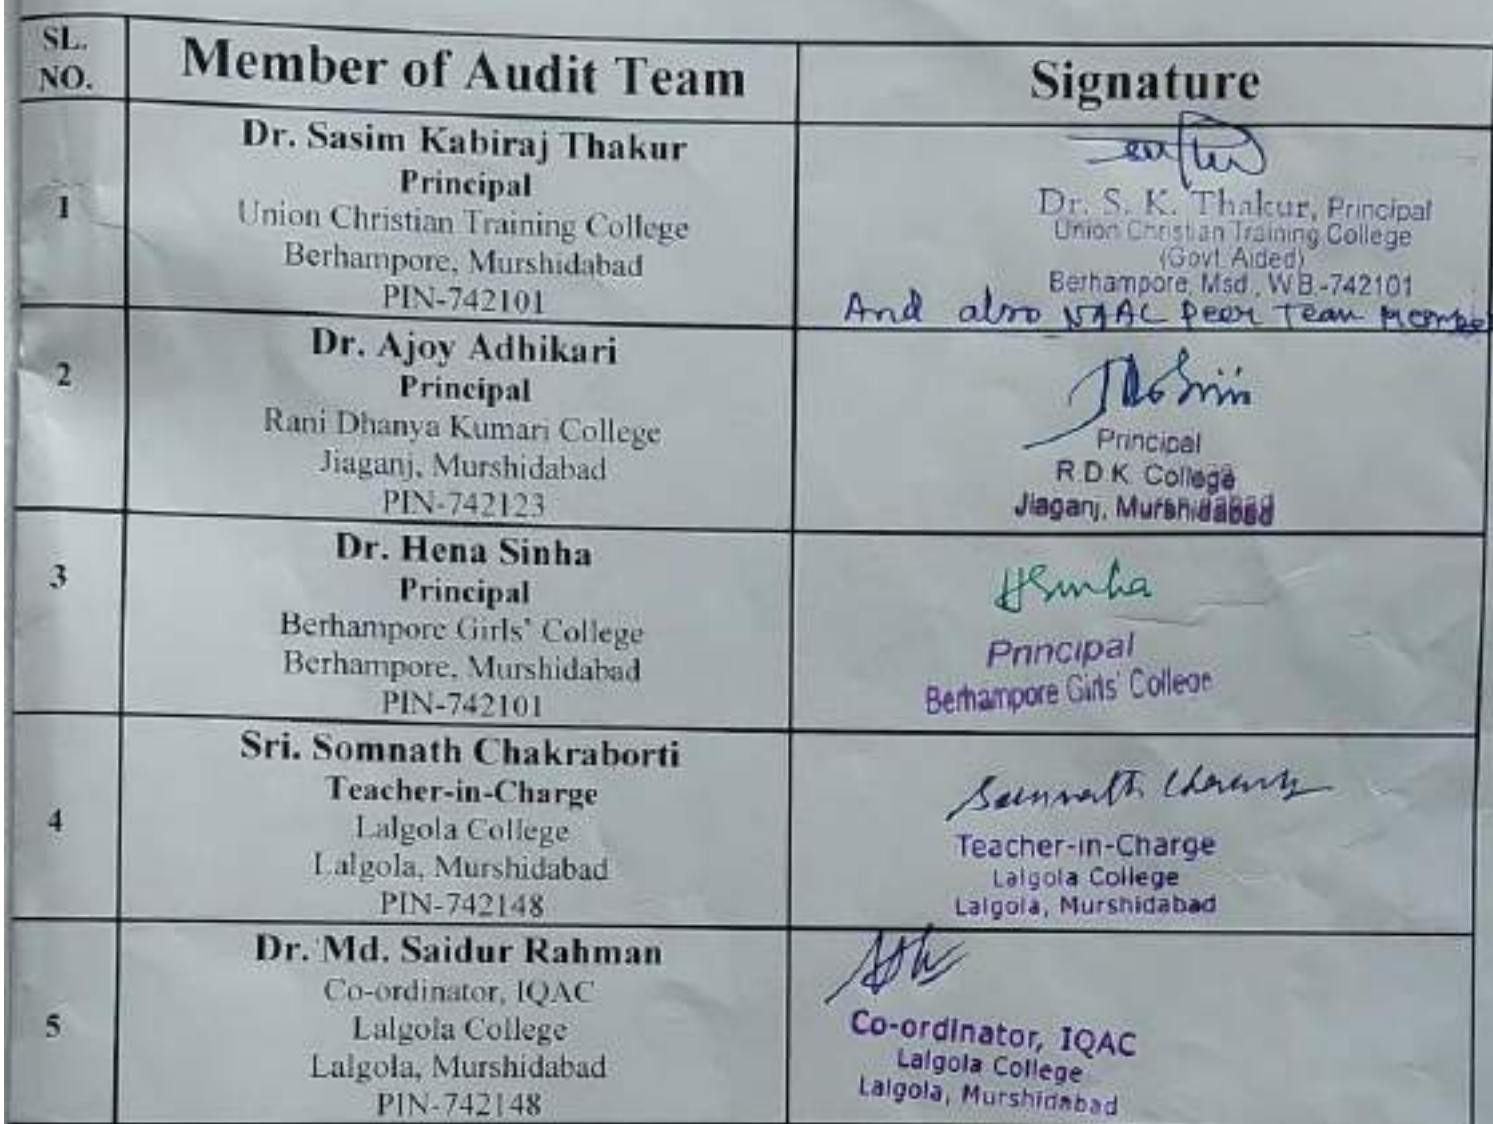 SL.
NO.
Member of Audit Team
Signature
1
Dr. Sasim Kabiraj Thakur
Principal
Union Christian Training College
Berhampore, Murshidabad
PIN-742101
Dr. S. K. Thakur, Principal
Union Christian Training College
(Govt. Aided)
Berhampore, Msd., W.B.-742101
And also NAAC Peer Team Member
2
Dr. Ajoy Adhikari
Principal
Rani Dhanya Kumari College
Jiaganj, Murshidabad
PIN-742123
Principal
R.D.K. College
Jiaganj, Murshidabad
3
Dr. Hena Sinha
Principal
Berhampore Girls' College
Berhampore, Murshidabad
PIN-742101
HSinha
Principal
Berhampore Girls' College
4
Sri. Somnath Chakraborti
Teacher-in-Charge
Lalgola College
Lalgola, Murshidabad
PIN-742148
Somnath
Teacher-in-Charge
Lalgola College
Lalgola, Murshidabad
5
Dr. Md. Saidur Rahman
Co-ordinator, IQAC
Lalgola College
Lalgola, Murshidabad
PIN-742148
Co-ordinator, IQAC
Lalgola College
Lalgola, Murshidabad